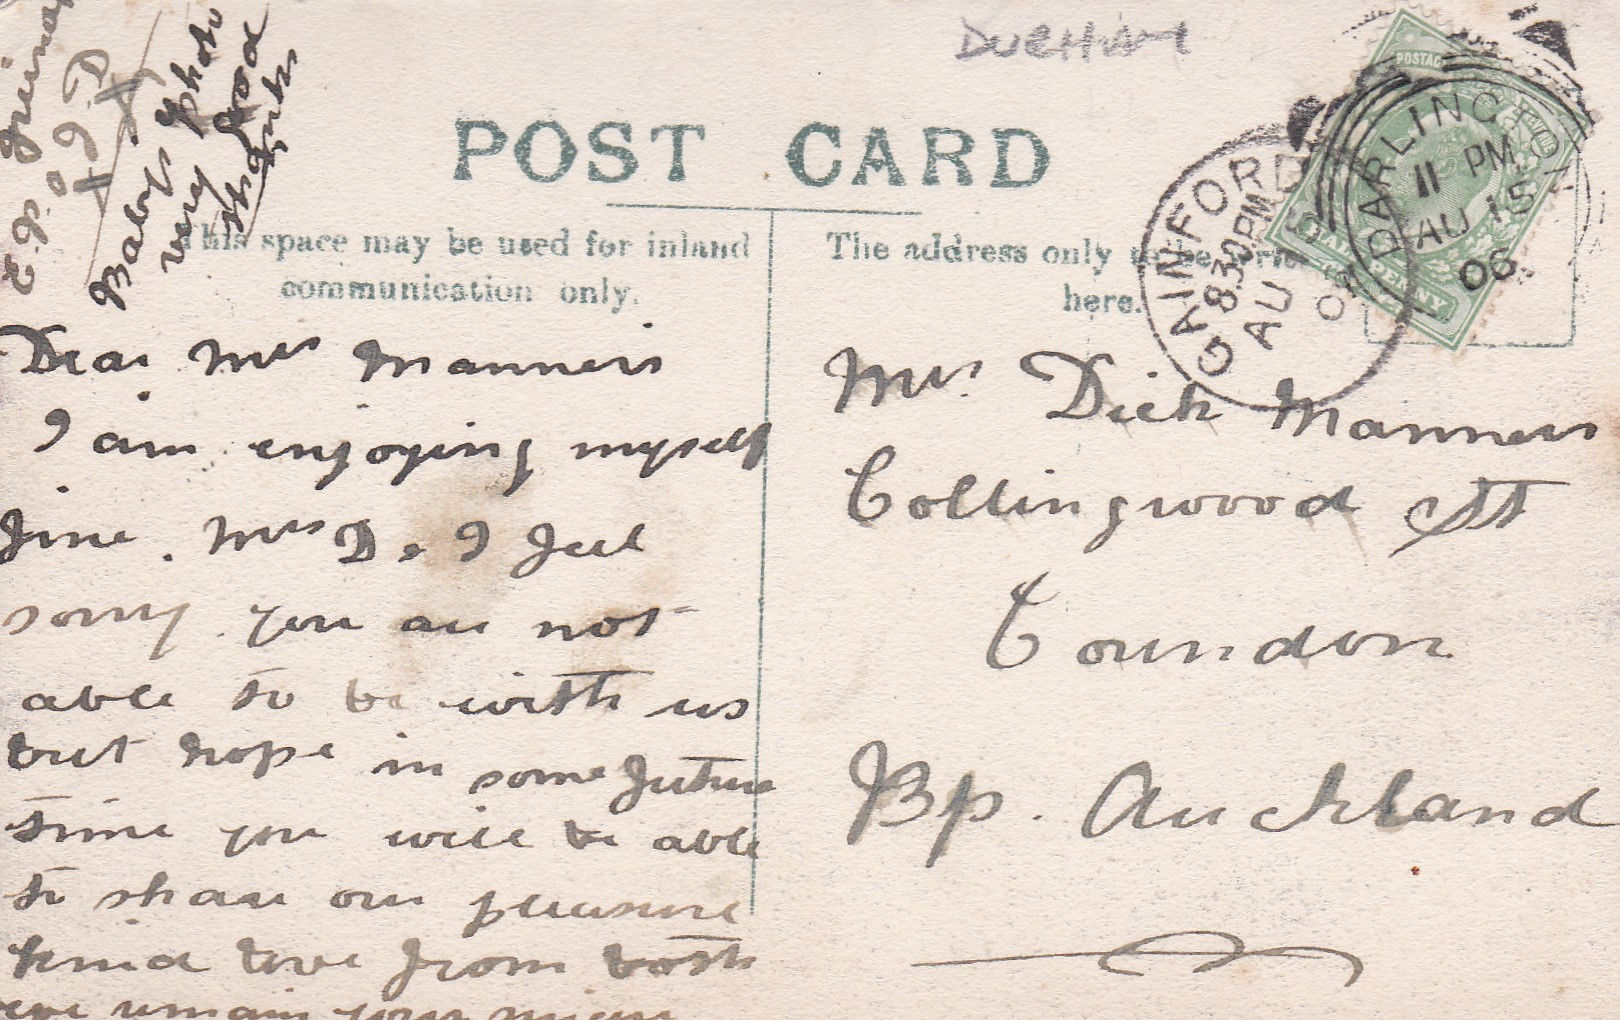 DURHAM
POST CARD
This space may be used for inland
communication only.
The address only to be
here.
POSTAGE
HALFPENNY
DARLINGTON
11 PM
AU 15
06
GAINFORD
8.30PM
AU
06
Babys Photo
very good
thanks
Dear Mrs Manners
I am enjoying myself
fine. Mrs D & I feel
sorry you are not
able to be with us
but hope in some future
time you will be able
to share our pleasure
kind love from both
remain your
Mrs. Dick Manners
Collingwood St
Coundon
Bp. Auckland